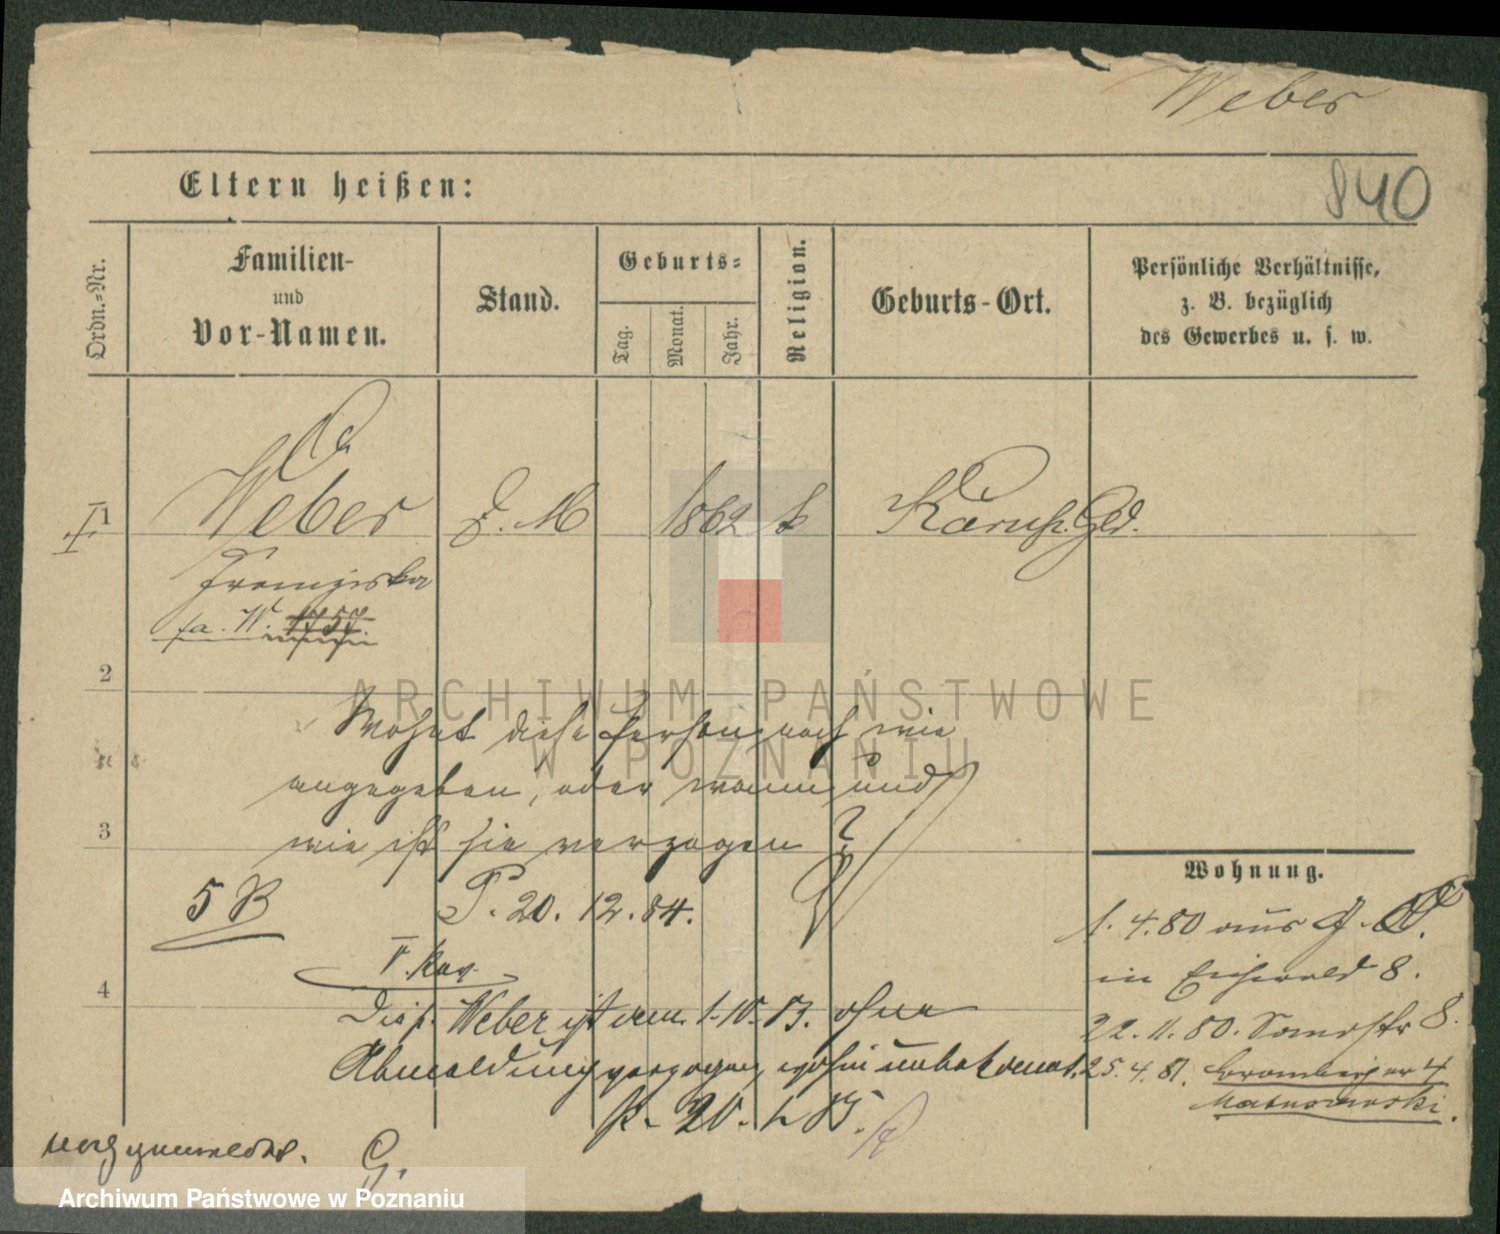 Weber
840
Eltern heißen:
Ordn.-Nr.
Familien-
und
Vor-Namen.
Stand.
Geburts-
Tag.
Monat.
Jahr.
Religion.
Geburts-Ort.
Persönliche Verhältnisse,
z. B. bezüglich
des Gewerbes u. s. w.
1
Weber
D. M
1862
k
Franziska
2
ARCHIWUM PAŃSTWOWE
W POZNANIU
Wohnt diese Person noch wie
angegeben, oder wann und
wie ist sie verzogen?
3
Wohnung.
5 B
P. 20. 12. 84.
1. 4. 80 aus
in Eichwald 8.
V. Rev.
4
Weber ist am 1. 10. 83. ohne
22. 11. 80. Sandstr 8.
Abmeldung verzogen, wohin unbekannt.
25. 4. 81. Brombergerstr 4
P. 20. 1. 85.
nachgemeldet.
G.
Archiwum Państwowe w Poznaniu